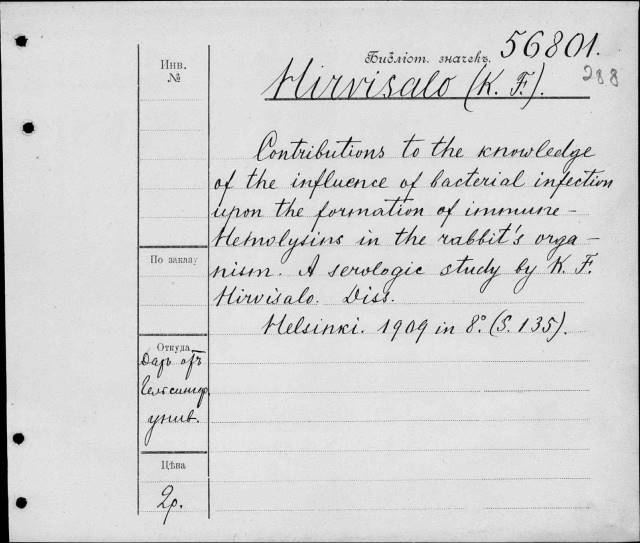 Библіот. значекъ 56801.
288
Hirvisalo (K. F.).
Инв.
№
Contributions to the knowledge
of the influence of bacterial infection
upon the formation of immune-
Hemolysins in the rabbit's orga-
nism. A serologic study by K. F.
Hirvisalo. Diss.
Helsinki. 1909 in 8º. (S. 135).
По заказу
Откуда
Даръ отъ
Гельсингф.
унив.
Цѣна
2р.